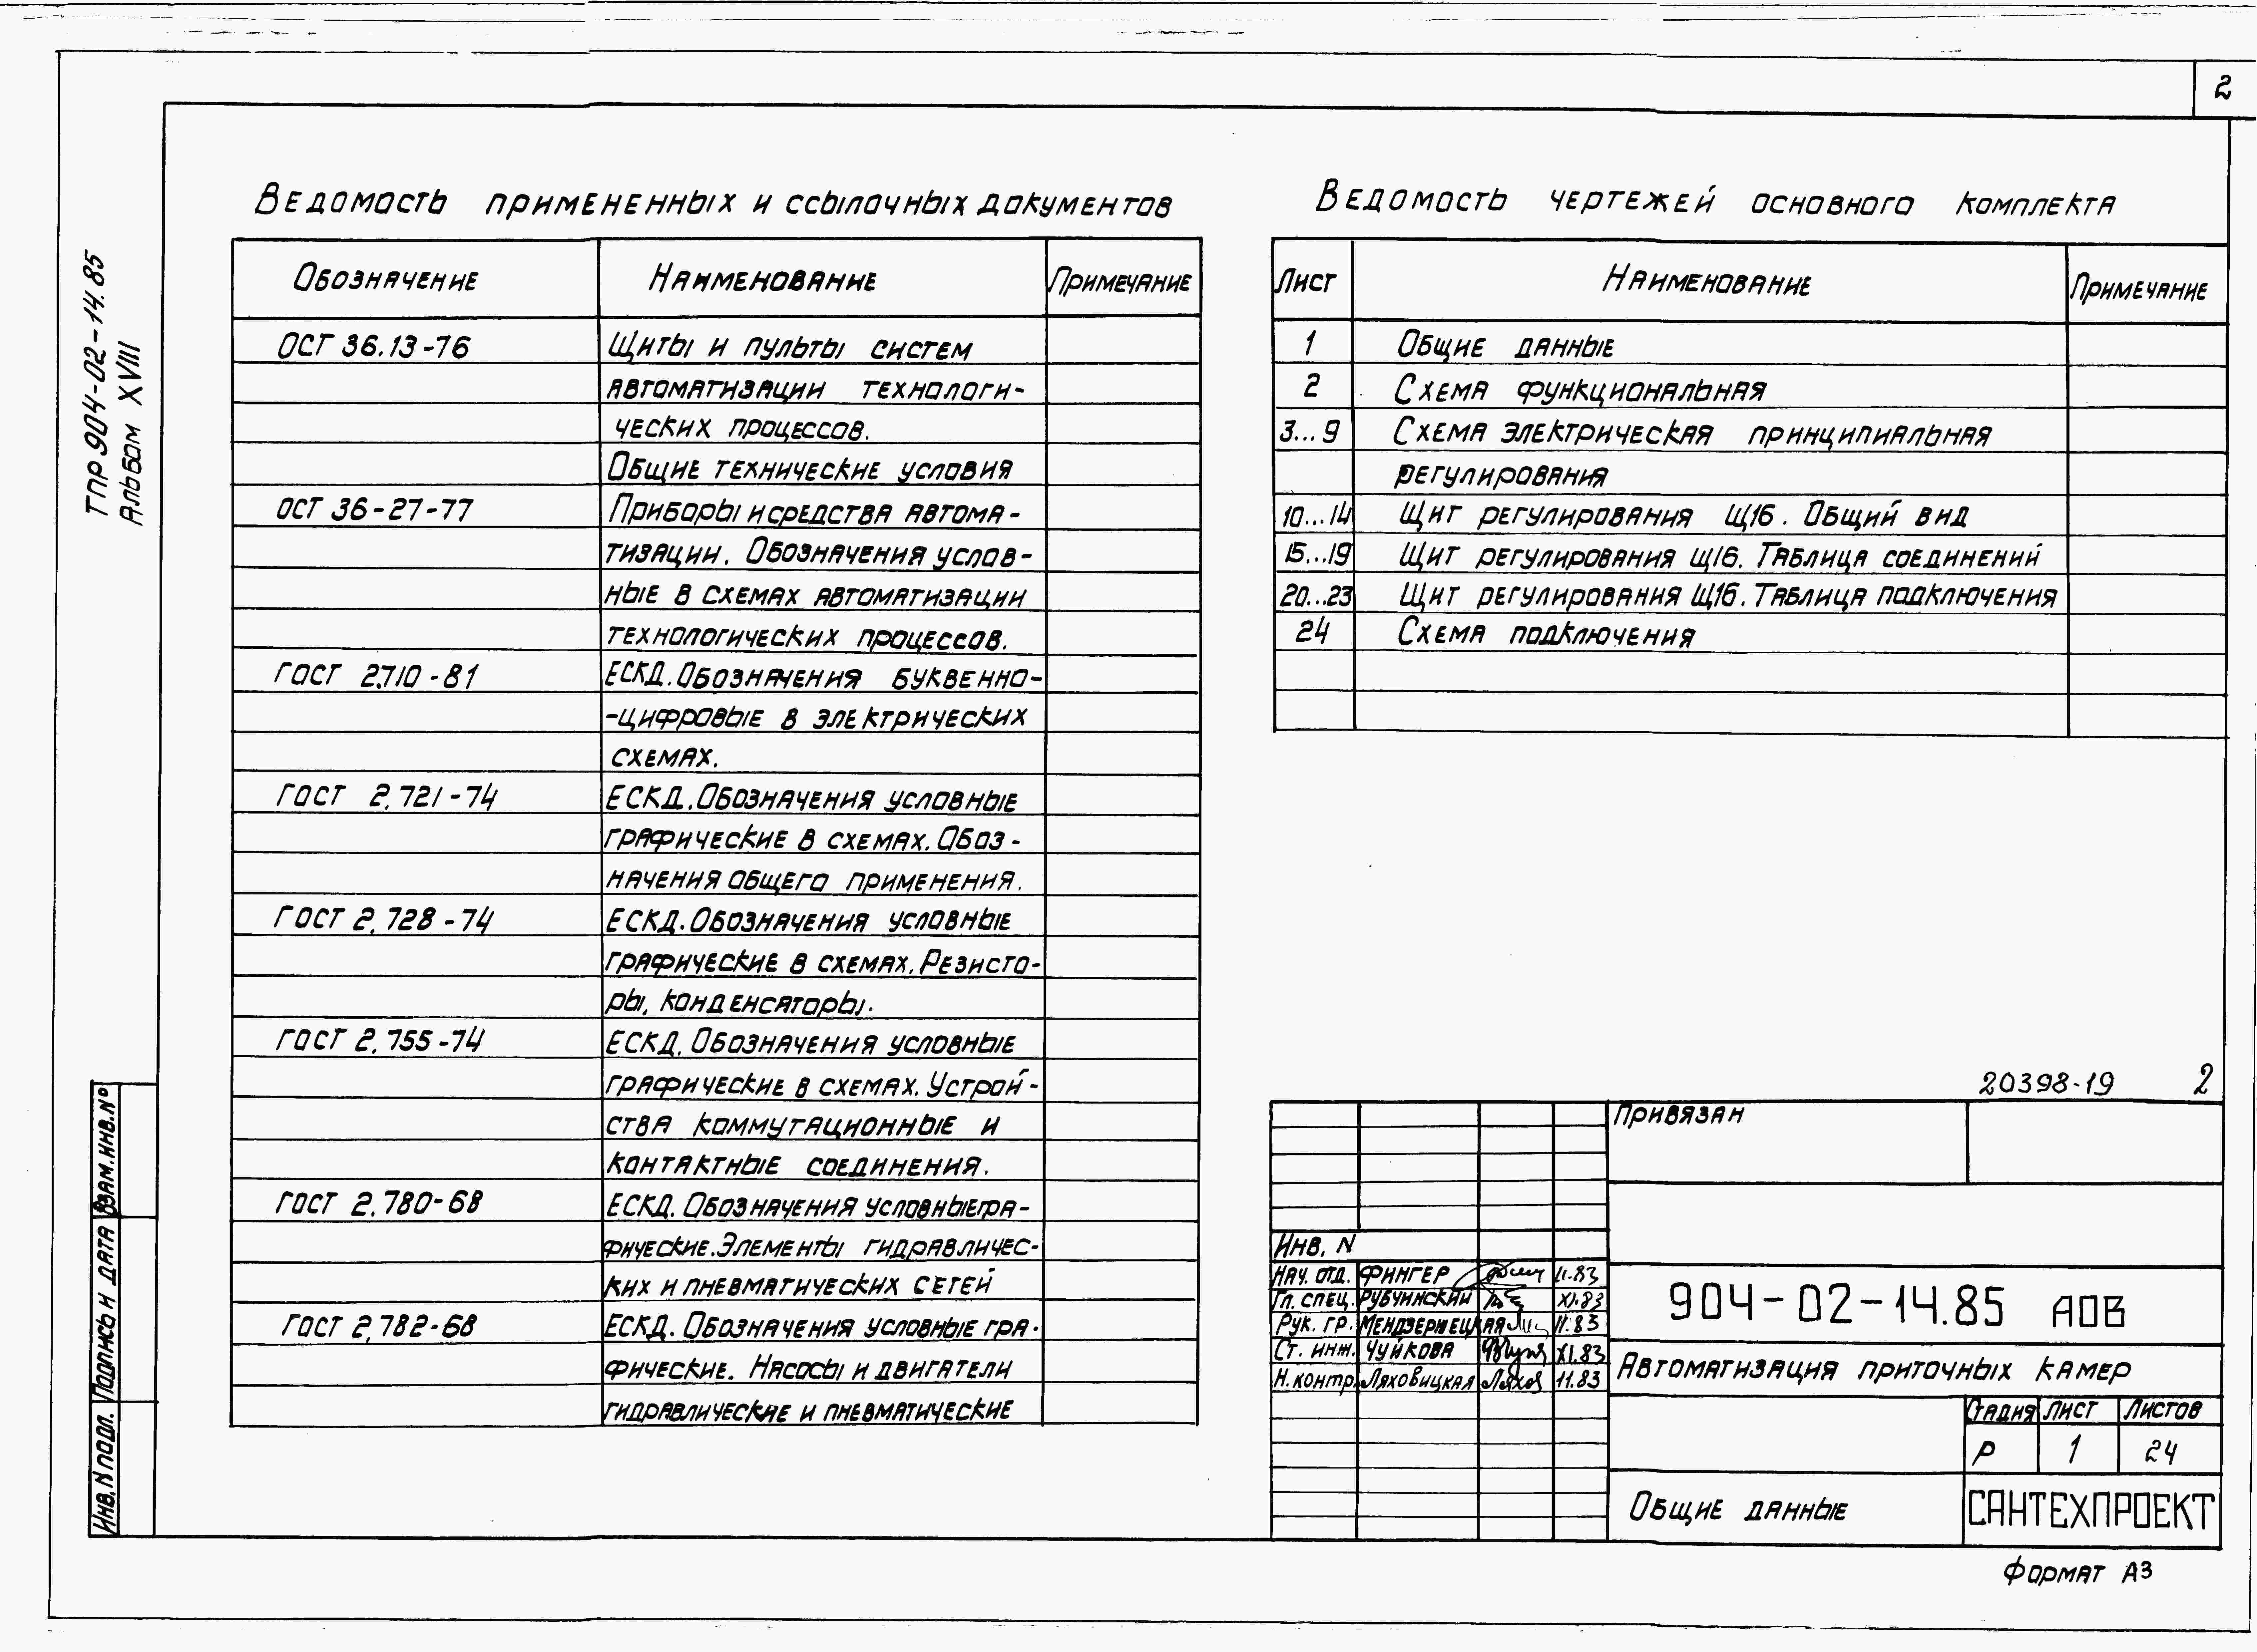 2
ТПР 904-02-14.85
Альбом XVIII
Ведомость примененных и ссылочных документов
Обозначение Наименование Примечание
ОСТ 36.13-76 Щиты и пульты систем
автоматизации технологи-
ческих процессов.
Общие технические условия
ОСТ 36-27-77 Приборы и средства автома-
тизации. Обозначения услов-
ные в схемах автоматизации
технологических процессов.
ГОСТ 2.710-81 ЕСКД. Обозначения буквенно-
-цифровые в электрических
схемах.
ГОСТ 2.721-74 ЕСКД. Обозначения условные
графические в схемах. Обоз-
начения общего применения.
ГОСТ 2.728-74 ЕСКД. Обозначения условные
графические в схемах. Резисто-
ры, конденсаторы.
ГОСТ 2.755-74 ЕСКД. Обозначения условные
графические в схемах. Устрой-
ства коммутационные и
контактные соединения.
ГОСТ 2.780-68 ЕСКД. Обозначения условные гра-
фические. Элементы гидравличес-
ких и пневматических сетей
ГОСТ 2.782-68 ЕСКД. Обозначения условные гра-
фические. Насосы и двигатели
гидравлические и пневматические
Ведомость чертежей основного комплекта
Лист Наименование Примечание
1 Общие данные
2 Схема функциональная
3...9 Схема электрическая принципиальная
регулирования
10...14 Щит регулирования Щ16. Общий вид
15...19 Щит регулирования Щ16. Таблица соединений
20...23 Щит регулирования Щ16. Таблица подключения
24 Схема подключения
20398-19 2
Привязан
Инв. N
Нач. отд. Фингер 11.83
Гл. спец. Рубчинский XI.83
Рук. гр. Мендзержецкая 11.83
Ст. инж. Чуйкова XI.83
Н. контр. Ляховицкая Ляхов 11.83
904-02-14.85 АОВ
Автоматизация приточных камер
Стадия Лист Листов
Р 1 24
Общие данные САНТЕХПРОЕКТ
Формат А3
Инв. N подл. Подпись и дата Взам. инв. №